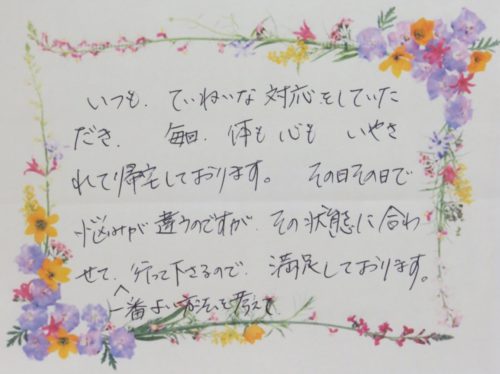 いつも、ていねいな対応をしていた
だき、 毎回、体も心も いやさ
れて帰宅しております。 その日その日で
悩みが違うのですが、その状態に合わ
せて、行って下さるので、満足しております。
一番よい方法を考えて